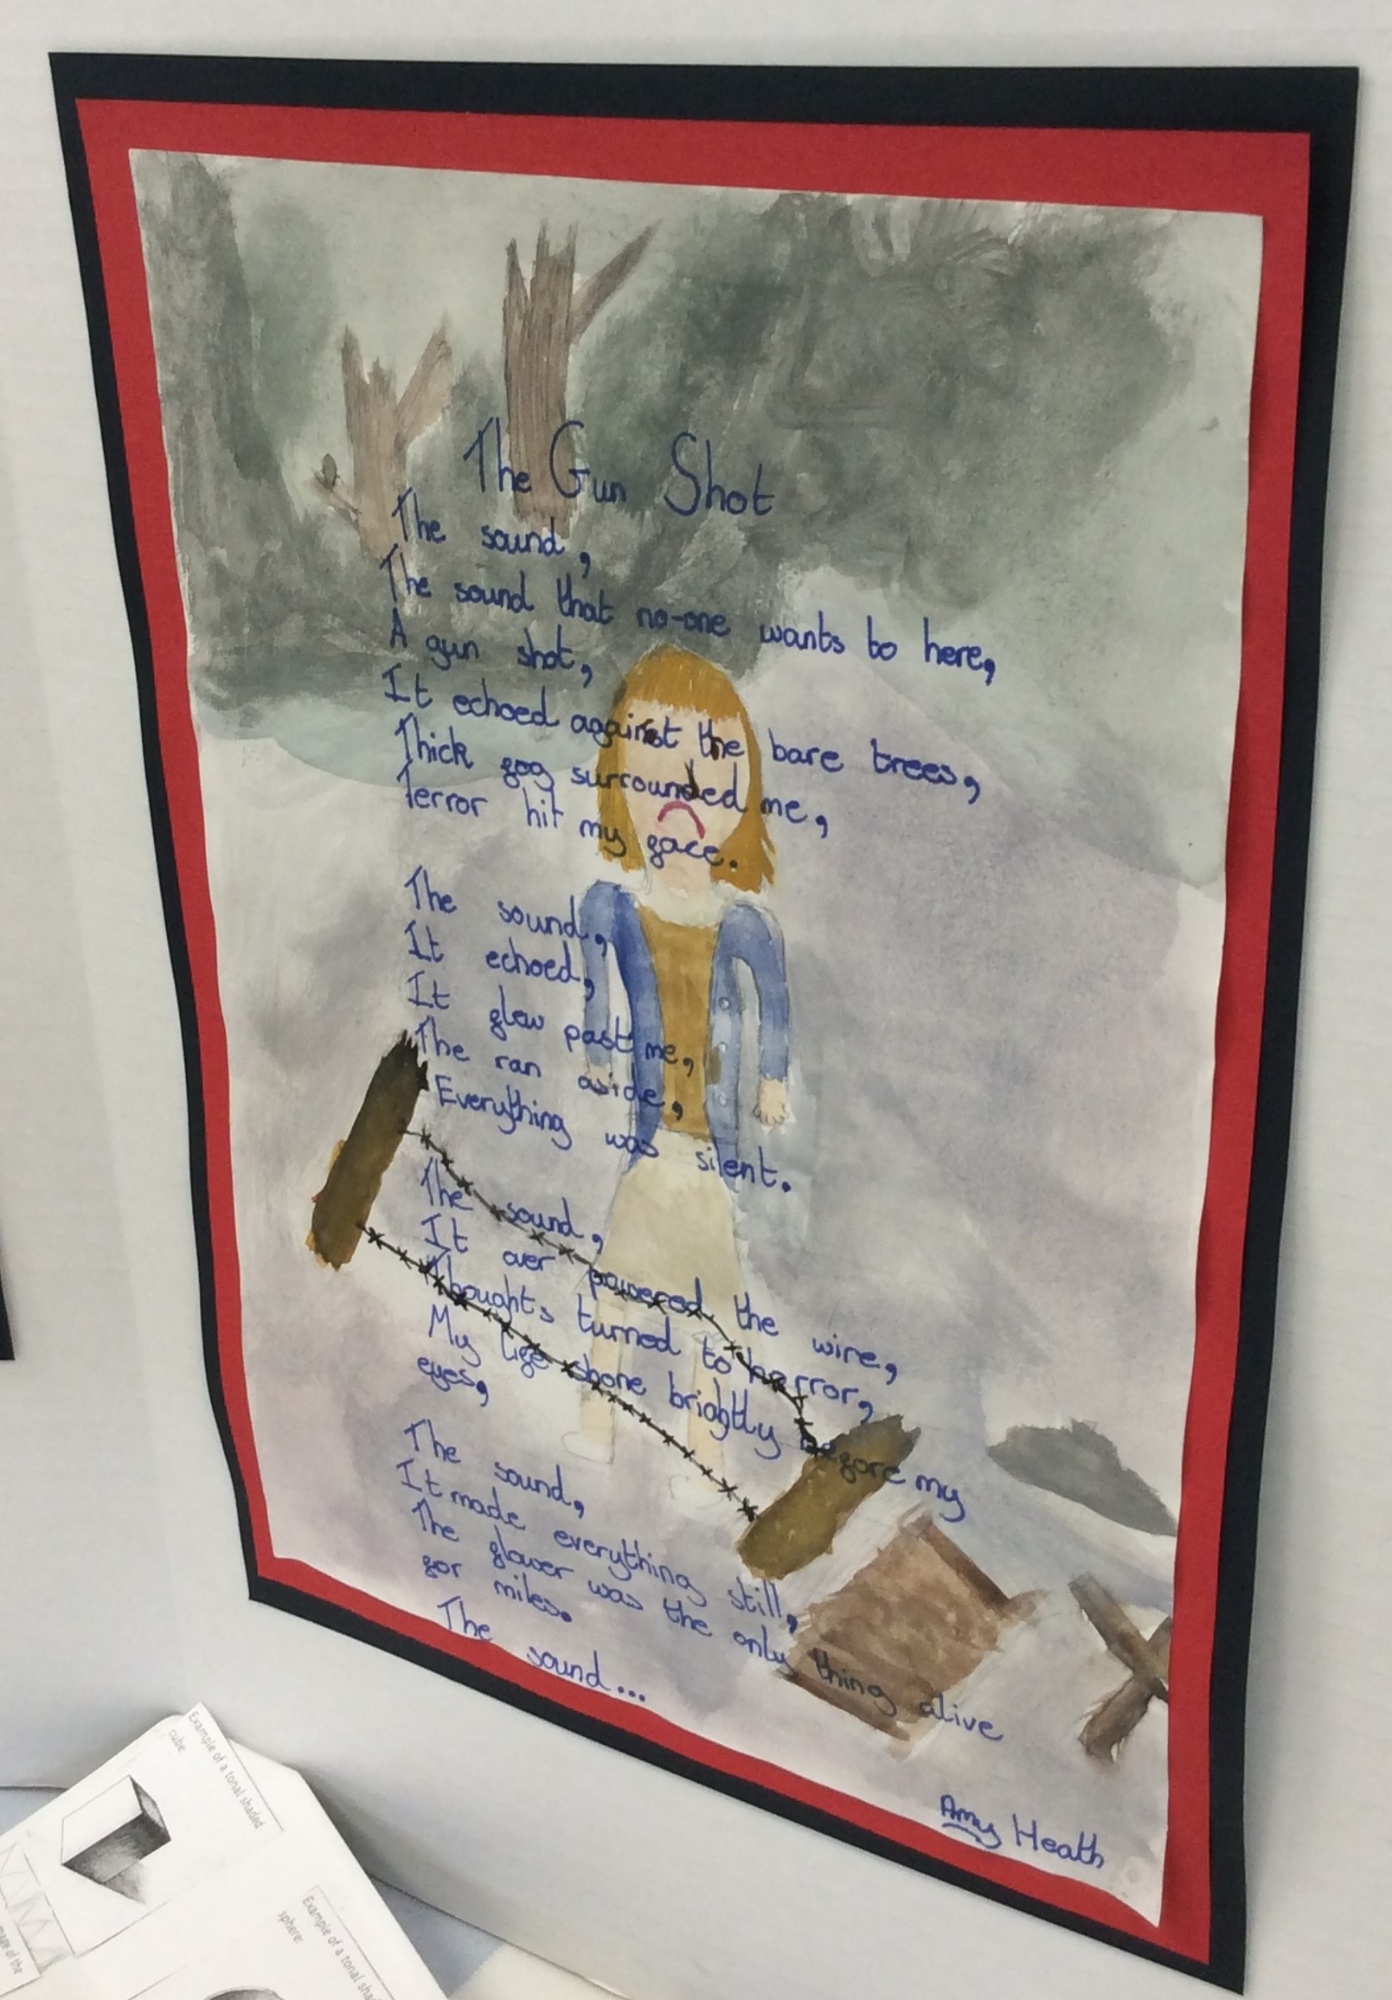 The Gun Shot
The sound,
The sound that no-one wants to here,
A gun shot,
It echoed against the bare trees,
Thick fog surrounded me,
Terror hit my face.
The sound,
It echoed,
It flew past me,
The ran aside,
Everything was silent.
The sound,
It over powered the wire,
Thoughts turned to horror,
My life shone brightly before my
eyes,
The sound,
It made everything still,
The flower was the only thing alive
for miles.
The sound...
Amy Heath
Example of a tonal shaded
cube
Example of a tonal
sphere:
of the